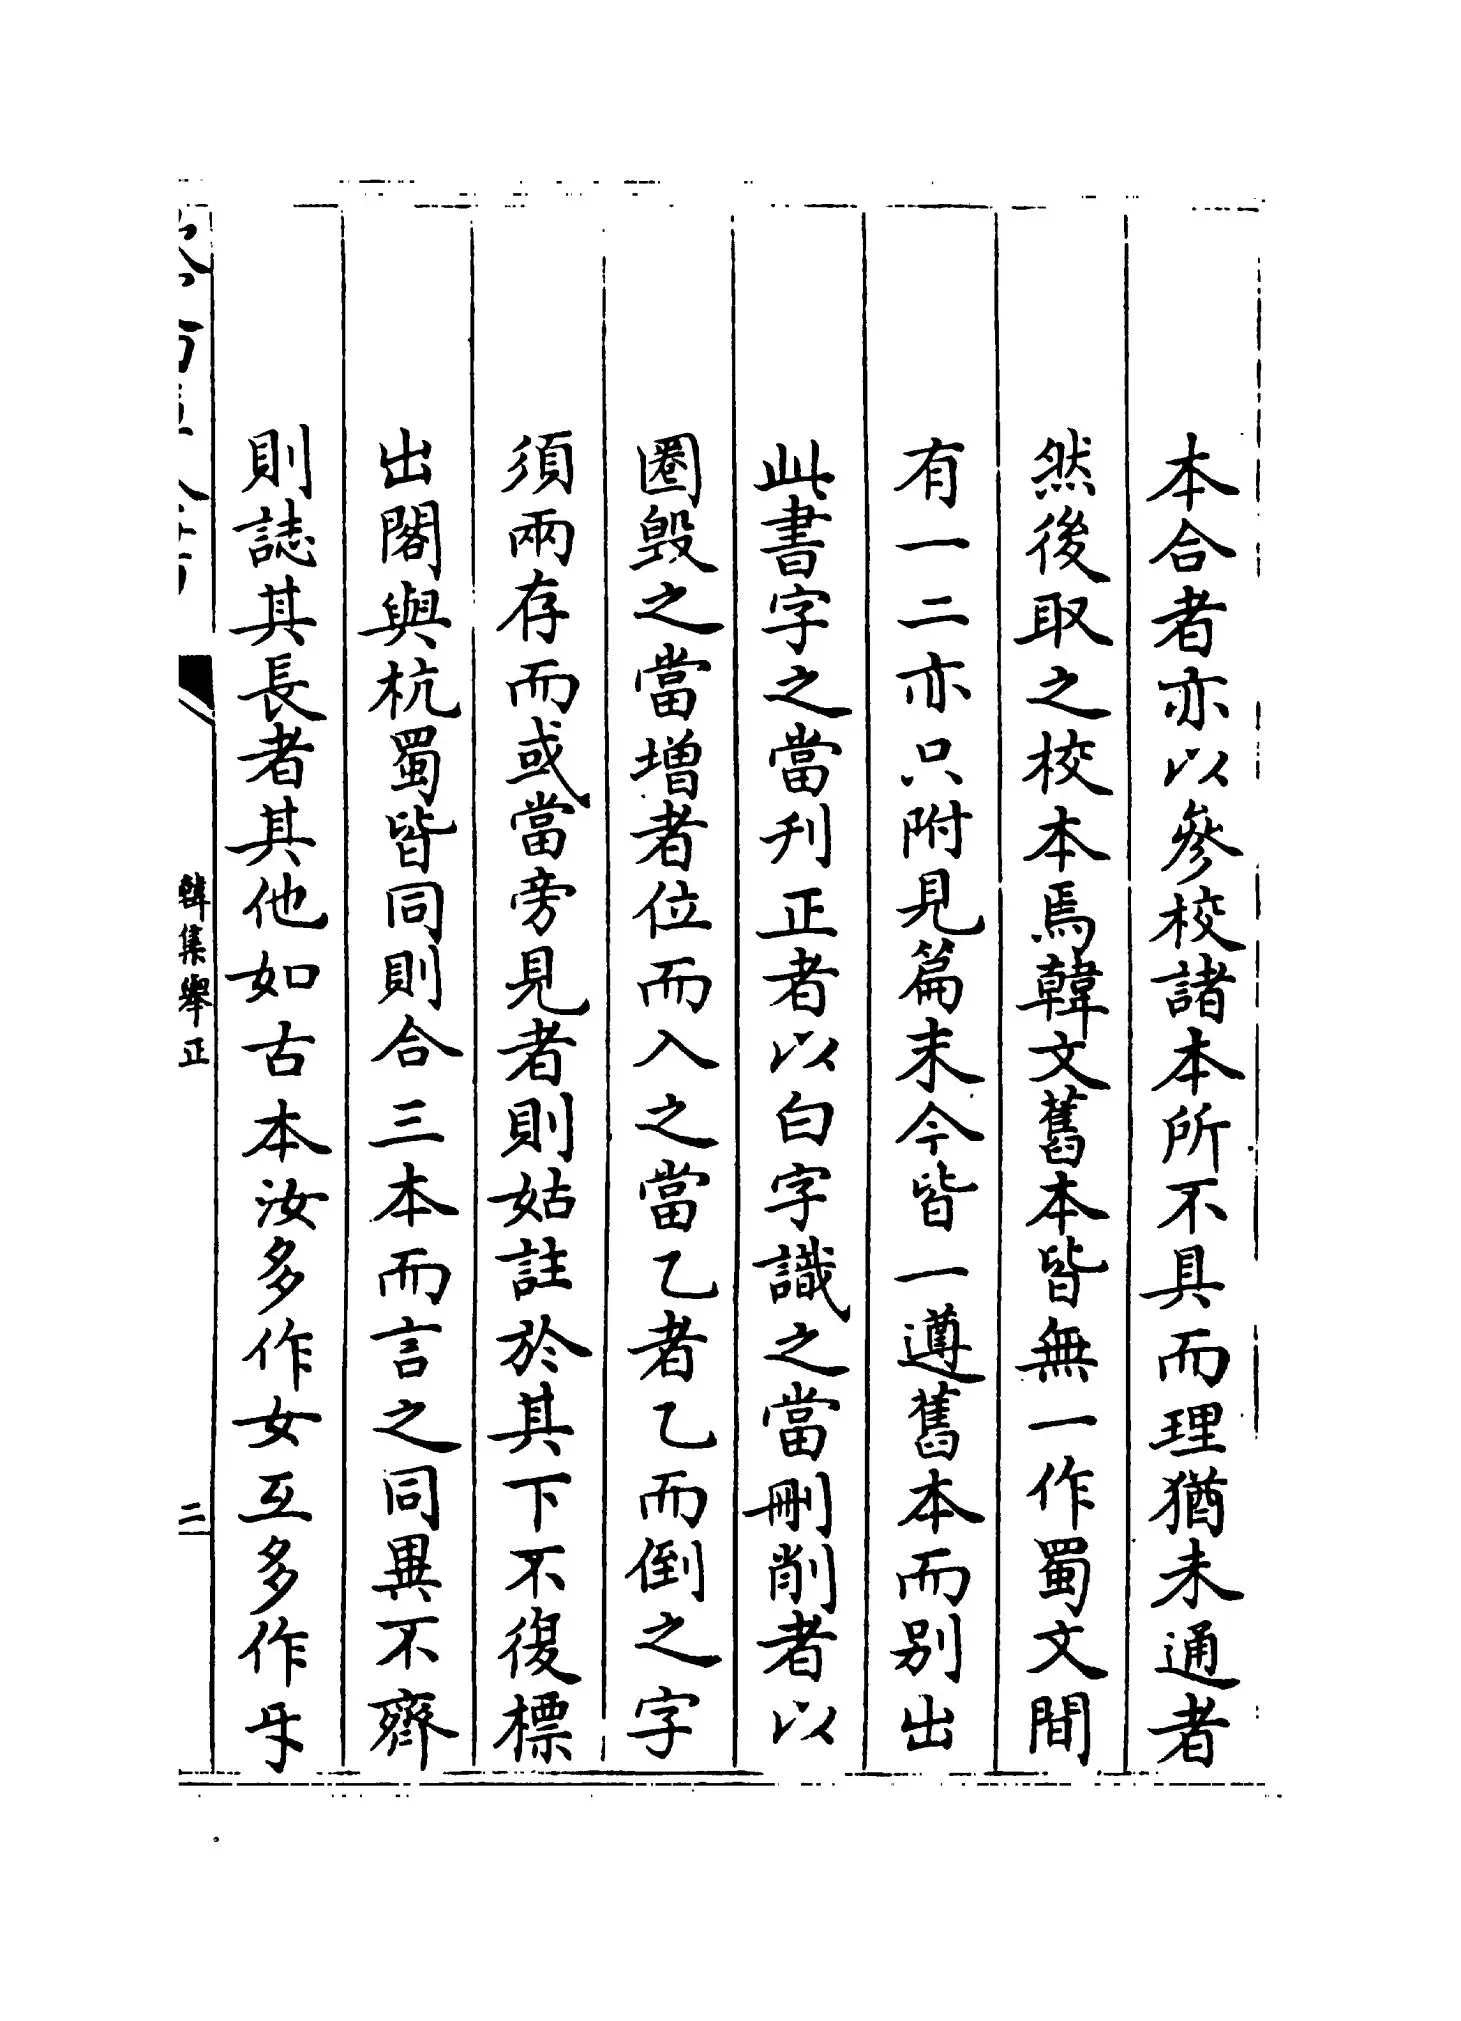 本合者亦以參校諸本所不具而理猶未通者
然後取之校本焉韓文舊本皆無一作蜀文間
有一二亦只附見篇末今皆一遵舊本而别出
此書字之當刋正者以白字識之當刪削者以
圏毁之當増者位而入之當乙者乙而倒之字
須兩存而或當旁見者則姑註於其下不復標
出閣與杭蜀皆同則合三本而言之同異不齊
則誌其長者其他如古本汝多作女互多作㸦
韓集舉正
二